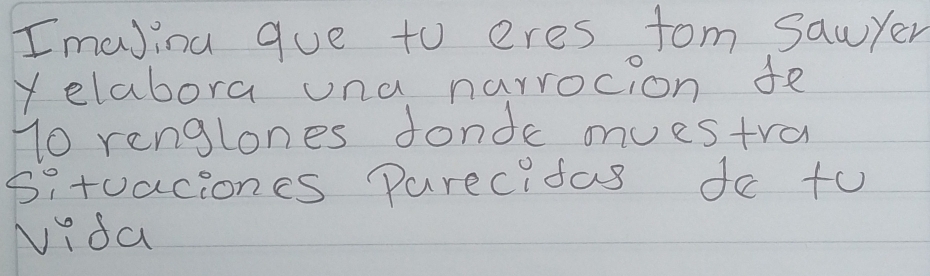 Imajina que tu eres tom Sawyer
y elabora una narrocion de
10 renglones donde muestra
Situaciones Parecidas de tu
vida